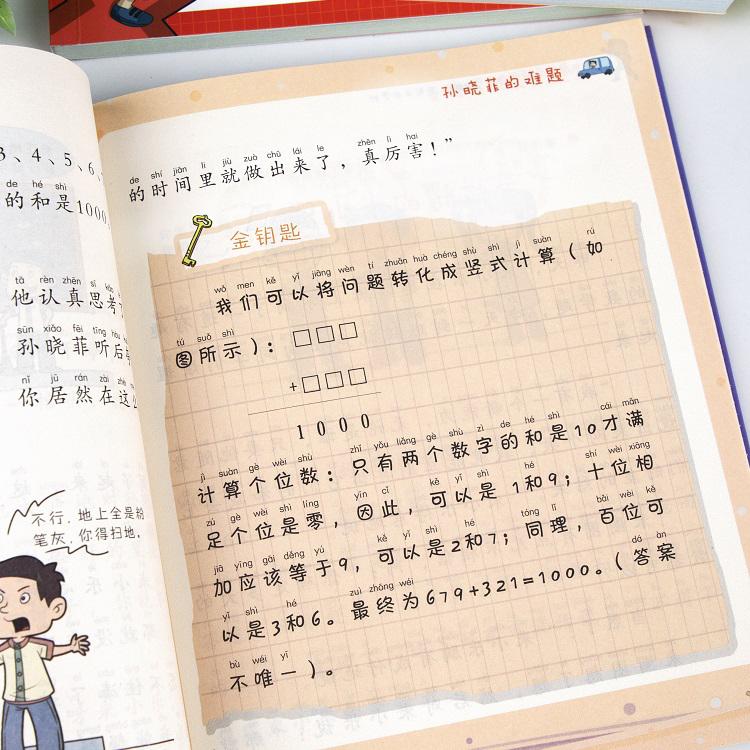 3、4、5、6、
de hé shì
的和是1000
tā rèn zhēn sī kǎo
他认真思考
sūn xiǎo fēi tīng hòu
孙晓菲听后
nǐ jū rán zài zhè
你居然在这么
不行，地上全是粉
笔灰，你得扫地。
孙晓菲的难题
de shí jiān lǐ jiù zuò chū lái le zhēn lì hai
的时间里就做出来了，真厉害！”
金钥匙
wǒ men kě yǐ jiāng wèn tí zhuǎn huà chéng shù shì jì suàn rú
我们可以将问题转化成竖式计算（如
tú suǒ shì
图所示）：□□□
+□□□
1000
jì suàn gè wèi shù zhǐ yǒu liǎng gè shù zì de hé shì cái mǎn
计算个位数：只有两个数字的和是10才满
zú gè wèi shì líng yīn cǐ kě yǐ shì hé shí wèi xiāng
足个位是零，因此，可以是1和9；十位相
jiā yīng gāi děng yú kě yǐ shì hé tóng lǐ bǎi wèi kě
加应该等于9，可以是2和7；同理，百位可
yǐ shì hé zuì zhōng wéi dá àn
以是3和6。最终为679+321=1000。（答案
bù wéi yī
不唯一）。